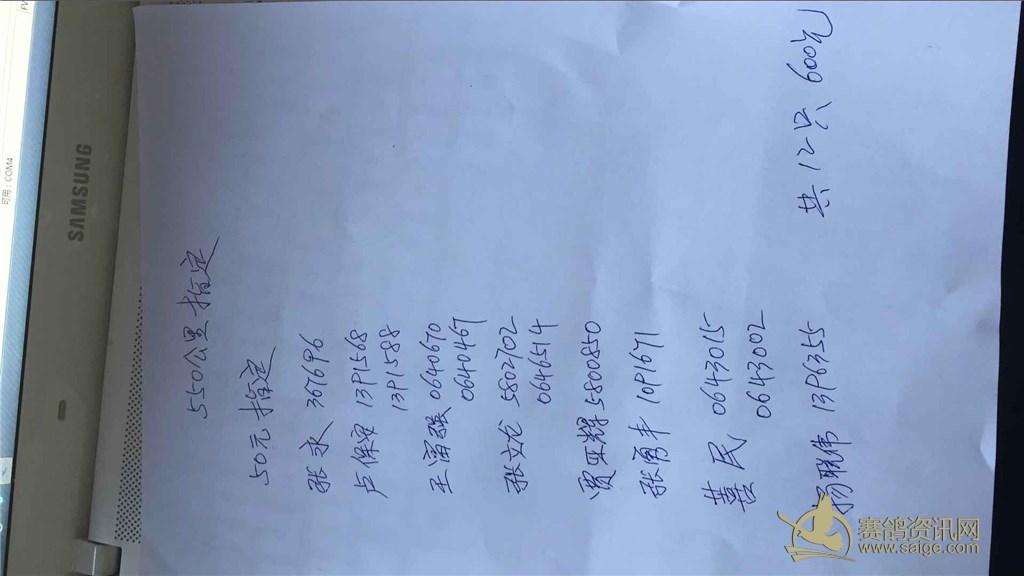 可用：COM4
SAMSUNG
550公里指定
50元指定
张永 367696
卢保安 13P1568
13P1588
王富强 0640670
0640467
张文龙 5802702
0646514
贾亚辉 5800850
张勇丰 10P1671
善民 0643015
0643002
杨联伟 13P6355
共12只 600元
赛鸽资讯网
www.saige.com